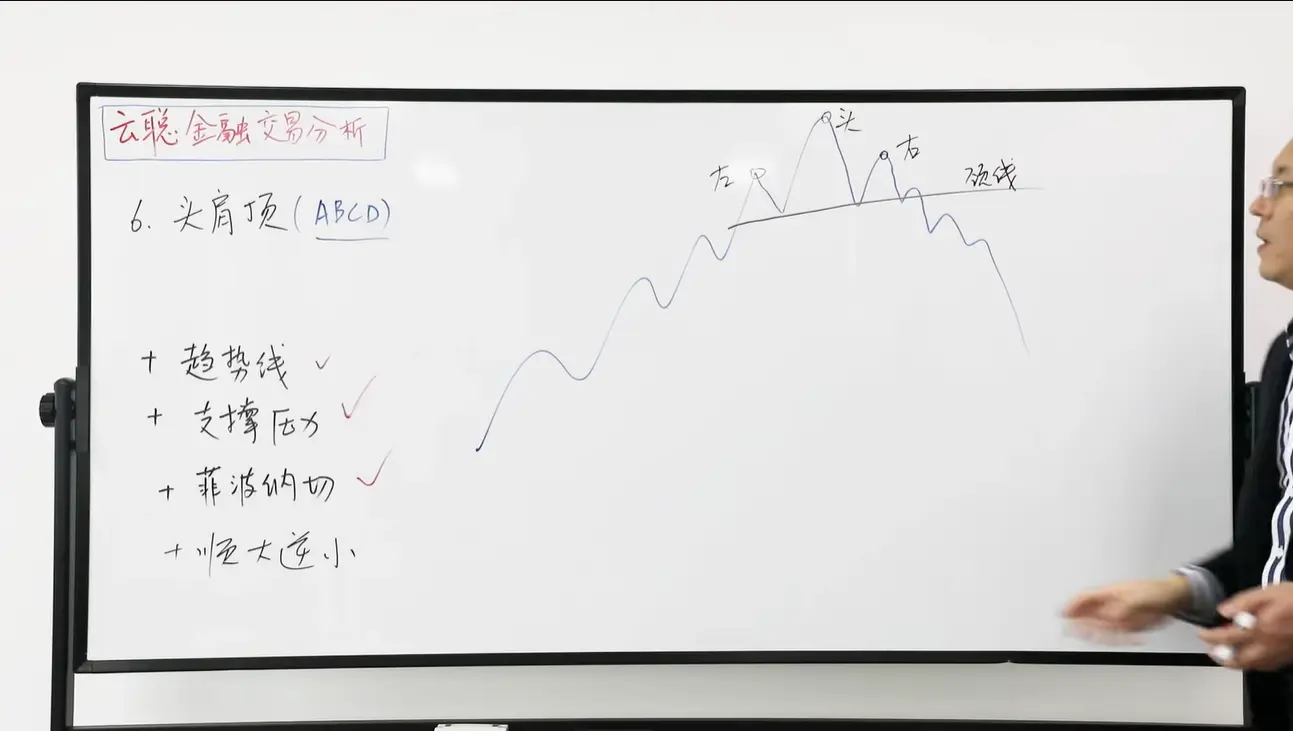 云聪金融交易分析
6. 头肩顶(ABCD)
+ 趋势线 ✓
+ 支撑压力 ✓
+ 菲波纳切 ✓
+ 顺大逆小
左
头
右
颈线